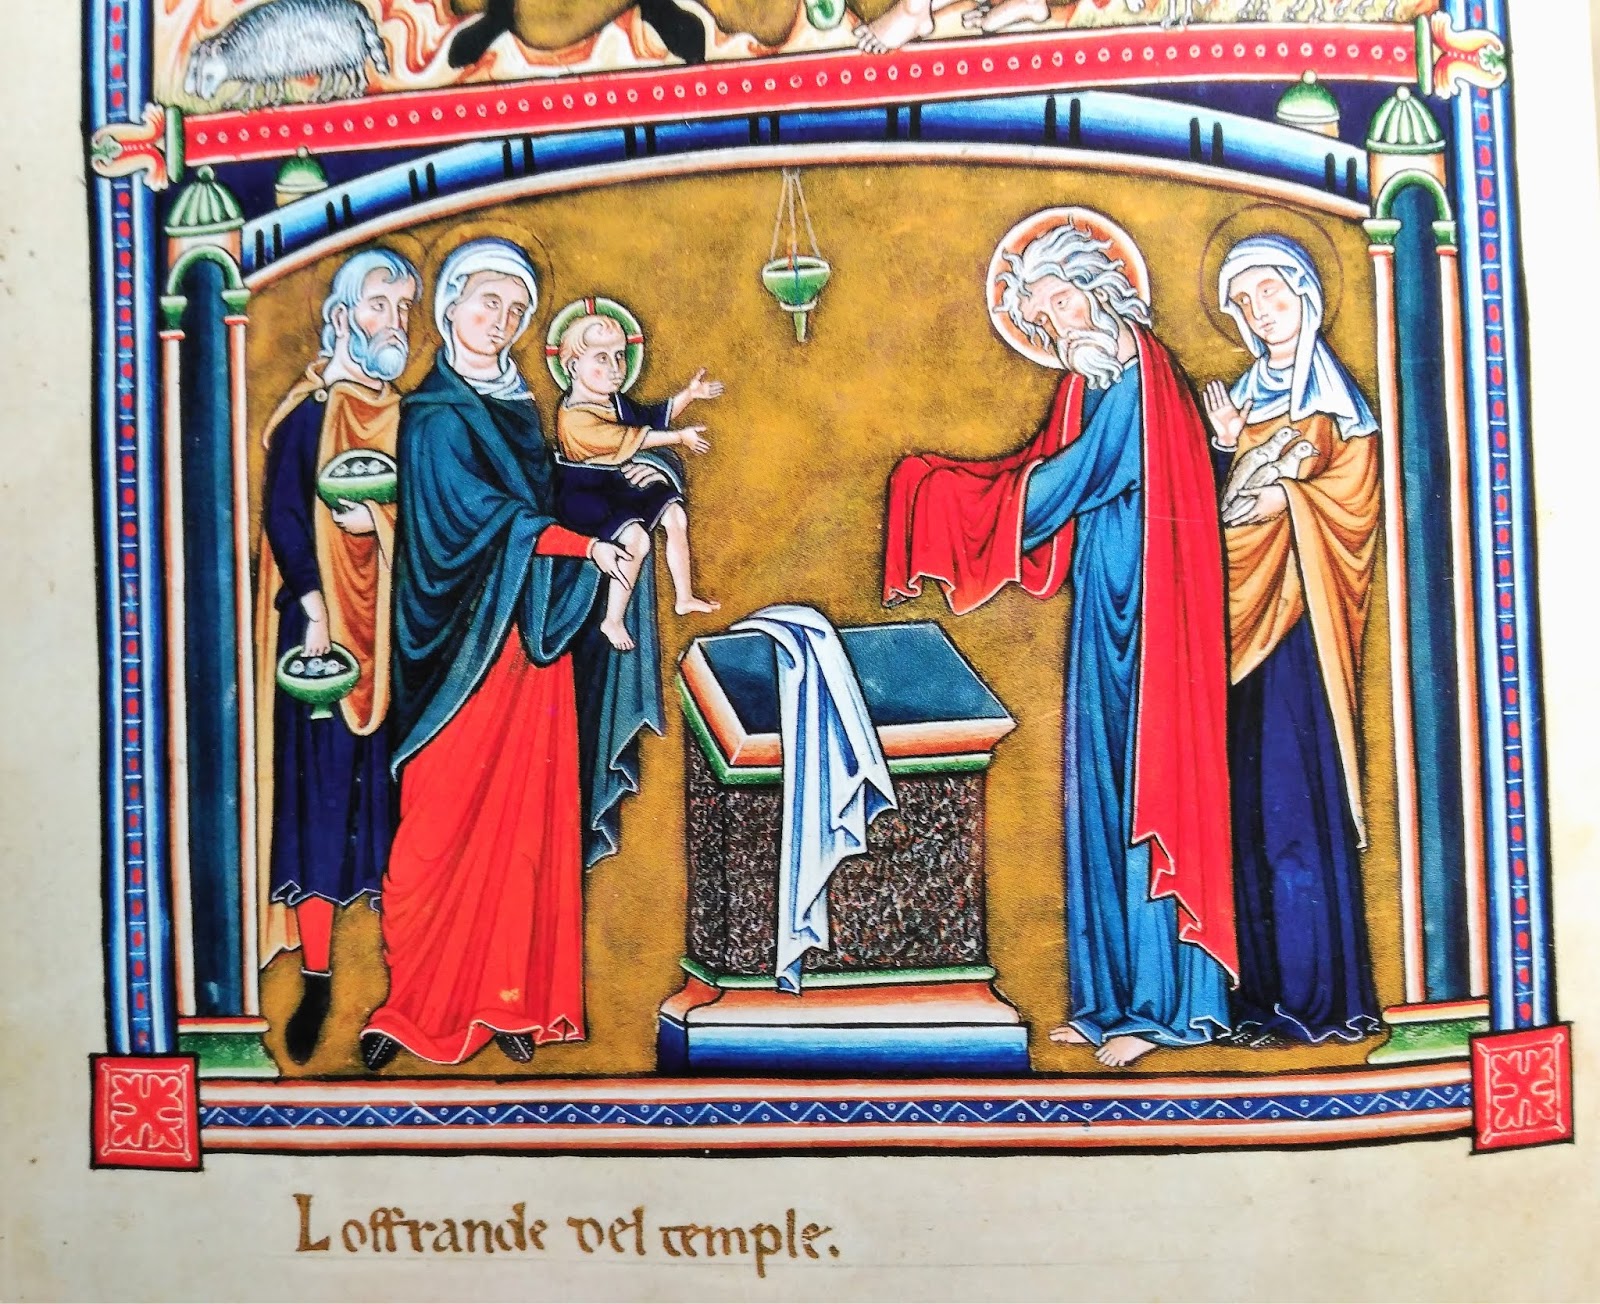 Loffrande del temple.